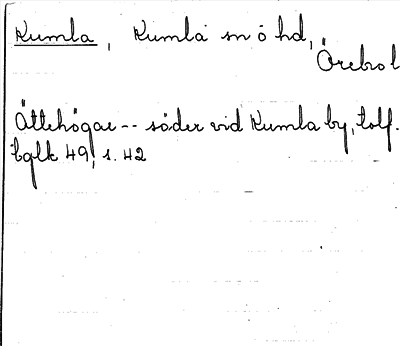 Kumla, Kumla sn o hd,
Örebro l
Ättehögar -- söder vid Kumla by, Lolf.
bglk 49, s. 42